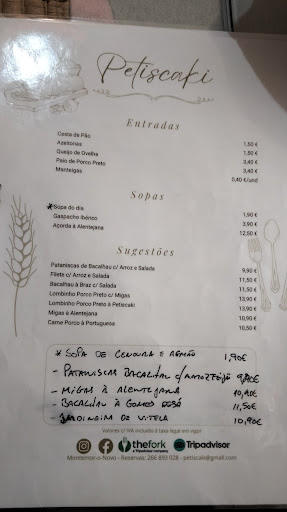 Petiscaki
Entradas
Cesta de Pão
Azeitonas 1,50 €
Queijo de Ovelha 1,50 €
Paio de Porco Preto 3,40 €
Manteigas 3,40 €
0,40 €/und
Sopas
*Sopa do dia 1,90 €
Gaspacho Ibérico 3,90 €
Açorda à Alentejana 12,50 €
Sugestões
Pataniscas de Bacalhau c/ Arroz e Salada 9,90 €
Filete c/ Arroz e Salada 11,50 €
Bacalhau à Braz c/ Salada 11,50 €
Lombinho Porco Preto c/ Migas 13,90 €
Lombinho Porco Preto à Petiscaki 13,90 €
Migas à Alentejana 10,90 €
Carne Porco à Portuguesa 10,50 €
* SOPA DE CENOURA E AGRIÃO 1,90€
- PATANISCAS BACALHAU C/ ARROZ FEIJÃO 9,90€
- MIGAS À ALENTEJANA 10,90€
- BACALHAU À GOMES SÁ 11,50€
- JARDINEIRA DE VITELA 10,90€
Valores c/ IVA incluído à taxa legal em vigor
thefork Tripadvisor
a Tripadvisor company
Montemor-o-Novo - Reservas: 266 893 028 - petiscaki@gmail.com